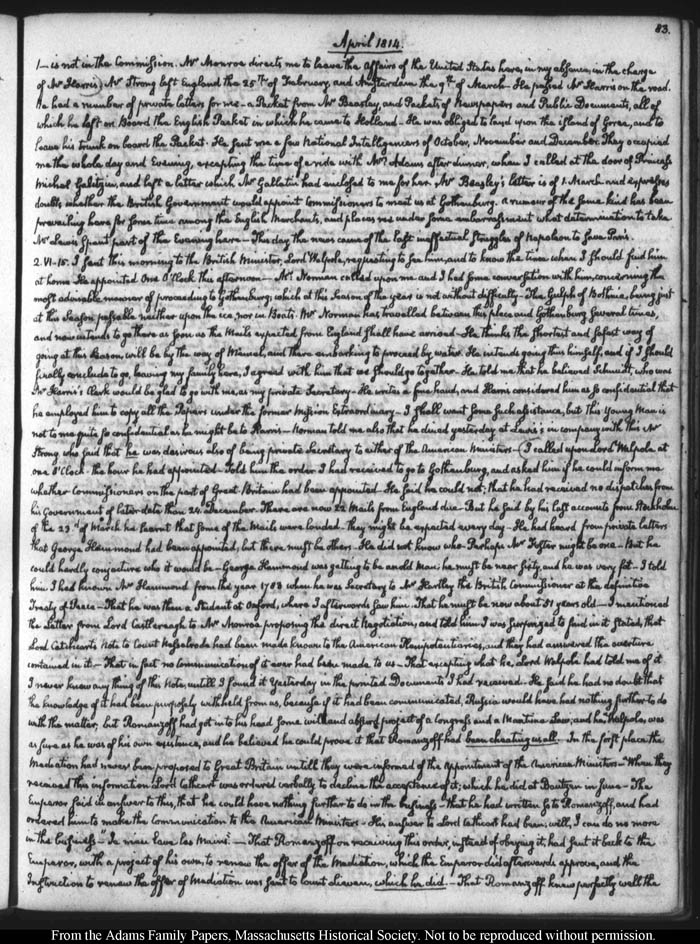 83.
April 1814.
is not in the Commission. Mr Monroe directs me to leave the Affairs of the United States here, in my absence, in the charge
of Mr Harris) Mr Strong left England the 25th of February, and Amsterdam the 9th of March. He passed Mr Harris on the road.
He had a number of private letters for me - a Packet from Mr Beasley, and Packets of Newspapers and Public Documents, all of
which he left on Board the English Packet in which he came to Holland - He was obliged to land upon the island of Goree, and to
leave his trunk on board the Packet. He sent me a few National Intelligencers of October, November and December. They occupied
me the whole day and Evening, excepting the time of a ride with Mrs Adams after dinner, when I called at the door of Princess
Michel Galitzin, and left a letter which Mr Gallatin had enclosed to me for her. Mr Beasley's letter is of 1. March and expresses
doubts whether the British Government would appoint Commissioners to meet us at Gothenburg. A rumour of the same kind has been
prevailing here for some time among the English Merchants, and places me under some embarrassment what determination to take
Mr Lewis spent part of the Evening here - This day the news came of the last ineffectual struggles of Napoleon to save Paris.
2. VI-15. I sent this morning to the British Minister, Lord Walpole, requesting to see him, and to know the time when I should find him
at home. He appointed One O'Clock this afternoon - Mr Norman called upon me and I had some conversation with him, concerning the
most advisable manner of proceeding to Gothenburg; which at this Season of the year is not without difficulty - The Gulph of Bothnia, being just
at this Season passable neither upon the ice, nor in Boats. Mr Norman has travelled between this place and Gothenburg several times,
and now intends to go there as soon as the Mails expected from England shall have arrived - He thinks the shortest and safest way of
going at this Season, will be by the way of Memel, and there embarking to proceed by water. He intends going this himself, and if I should
finally conclude to go, leaving my family here, I agreed with him that we should go together. He told me that he believed Schmidt, who was
Mr Harris's Clerk would be glad to go with me, as my private Secretary - He writes a fine hand, and Harris considered him as so confidential that
he employed him to copy all the Papers under the former Mission Extraordinary - I shall want some such assistance, but this Young Man is
not to me quite so confidential as he might be to Harris - Norman told me also that he dined yesterday at Lewis's in company with this Mr
Strong who said that he was desirous also of being private Secretary to either of the American Ministers - (I called upon Lord Walpole at
one O'Clock - the hour he had appointed - Told him the order I had received to go to Gothenburg, and asked him if he could inform me
whether Commissioners on the part of Great-Britain had been appointed. He said he could not; that he had received no dispatches from
his Government of later date than 24. December. There are now 22 Mails from England due - But he said by his last accounts from Stockholm
of the 23d of March he learnt that some of the Mails were landed - they might be expected every day - He had heard from private letters
that George Hammond had been appointed, but there must be others - He did not know who - Perhaps Mr Foster might be one - But he
could hardly conjecture who it would be - George Hammond was getting to be an old Man; he must be near sixty, and he was very fat - I told
him I had known Mr Hammond from the year 1783 when he was Secretary to Mr Hartley the British Commissioner at the definitive
Treaty of Peace - That he was then a Student at Oxford, where I afterwards saw him. That he must be now about 51 years old - I mentioned
the Letter from Lord Castlereagh to Mr Monroe proposing the direct Negotiation, and told him I was surprized to find in it stated, that
Lord Cathcart's Note to Count Nesselrode had been made known to the American Plenipotentiaries, and they had answered the overture
contained in it - That in fact no communication of it ever had been made to us - That excepting what he, Lord Walpole had told me of it
I never knew any thing of this Note, untill I found it Yesterday in the printed Documents I had received - He said he had no doubt that
the knowledge of it had been purposely withheld from us, because if it had been communicated, Russia would have had nothing further to do
with the matter; but Romanzoff had got into his head some wild and absurd project of a Congress and a Maritime Law; and he, Walpole, was
as sure as he was of his own existence, and he believed he could prove it that Romanzoff had been cheating us all. - In the first place the
Mediation had never been proposed to Great Britain untill they were informed of the appointment of the American Ministers - When they
received this information Lord Cathcart was ordered verbally to decline the acceptance of it; which he did at Bautzen in June - The
Emperor said in answer to this, that he could have nothing further to do in the business - that he had written so to Romanzoff, and had
ordered him to make the Communication to the American Ministers - His answer to Lord Cathcart had been; well, I can do no more
in the business" Je m'en lave les Mains. - That Romanzoff on receiving this order, instead of obeying it, had sent it back to the
Emperor, with a project of his own to renew the offer of the Mediation, which the Emperor did afterwards approve, and the
Instruction to renew the offer of Mediation was sent to Count Lieven, which he did. - That Romanzoff knew perfectly well the
From the Adams Family Papers, Massachusetts Historical Society. Not to be reproduced without permission.